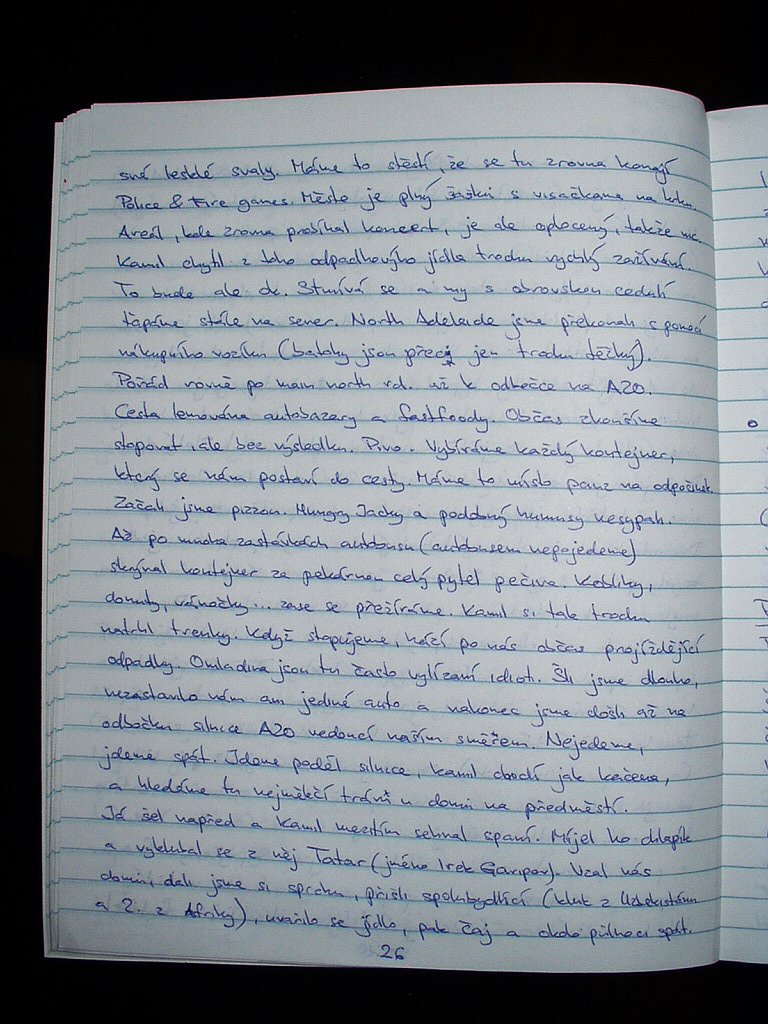 své lesklé svaly. Máme to štěstí, že se tu zrovna konají
Police & Fire games. Město je plný s visačkama na krku
Areál, kde zrovna probíhal koncert, je ale oplocený, takže nic.
Kamil chytil z toho odpadkovýho jídla trochu rychlý zažívání.
To bude ale ok. Stmívá se a my s obrovskou cedulí
ťapáme stále na sever. North Adelaide jsme překonali s pomocí
nákupního vozíku (batohy jsou přeci jen trochu těžký).
Pořád rovně po main north rd. až k odbočce na A20.
Cesta lemována autobazary a fastfoody. Občas zkoušíme
stopovat, ale bez výsledku. Pivo. Vybíráme každý kontejner,
který se nám postaví do cesty. Máme to místo pauz na odpočinek.
Začali jsme pizzou. Hungry Jacky a podobný humusy nesypali.
Až po mnoha zastávkách autobusu (autobusem nepojedeme)
skýtal kontejner za pekárnou celý pytel pečiva. Koblihy,
donuty, vánočky... zase se přežíráme. Kamil si tak trochu
natrhl trenky. Když stopujeme, hází po nás občas projíždějící
odpadky. Omladina jsou tu často vylízaní idioti. Šli jsme dlouho,
nezastavilo nám ani jediné auto a nakonec jsme došli až na
odbočku silnice A20 vedoucí naším směrem. Nejedeme,
jdeme spát. Jdeme podél silnice, Kamil chodí jak kačena,
a hledáme tu nejměkčí trávu u domu na předměstí.
Já šel napřed a Kamil mezitím sehnal spaní. Míjel ho chlapík
a vyklubal se z něj Tatar (jméno Irek Garipov). Vzal nás
domů, dali jsme si sprchu, přišli spolubydlící (kluk z Uzbekistánu
a 2. z Afriky), uvařilo se jídlo, pak čaj a okolo půlnoci spát.
26